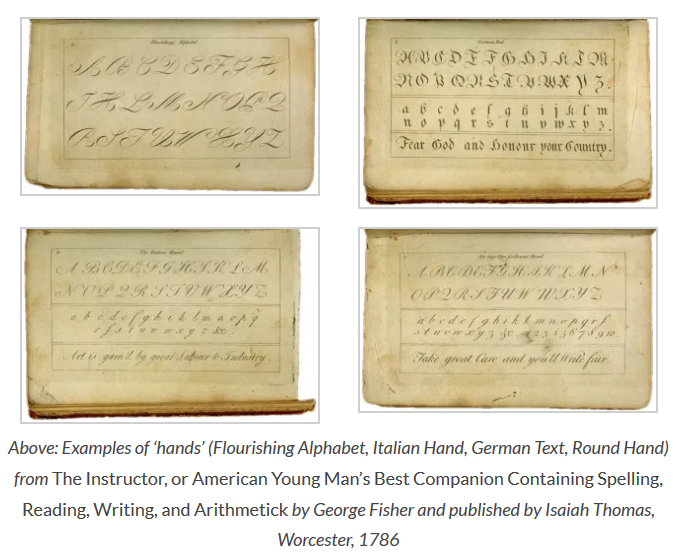 Flourishing Alphabet
A B C D E F G H
I K L M N O P Q
R S T U W X Y Z
German Text
A B C D E F G H I K L M
N O P Q R S T V U W X Y Z
a b c d e f g h i j k l m
n o p q r s t u v w x y z.
Fear God and Honour your Country.
The Italian Hand
A B C D E F G H I K L M
N O P Q R S T U V W X Y Z
a b c d e f g h i k l m n o p q
r s s t u v w x y z &c.
Art is gain'd by great Labour & Industry.
An easy Copy for Round Hand
A B C D E F G H I K L M N
O P Q R S T U W X Y Z
a b c d e f g h i k l m n o p q r s
s t u v w x y z &c. 1 2 3 4 5 6 7 8 9 10
Take great Care and you'll Write fair.
Above: Examples of ‘hands’ (Flourishing Alphabet, Italian Hand, German Text, Round Hand)
from The Instructor, or American Young Man’s Best Companion Containing Spelling,
Reading, Writing, and Arithmetick by George Fisher and published by Isaiah Thomas,
Worcester, 1786